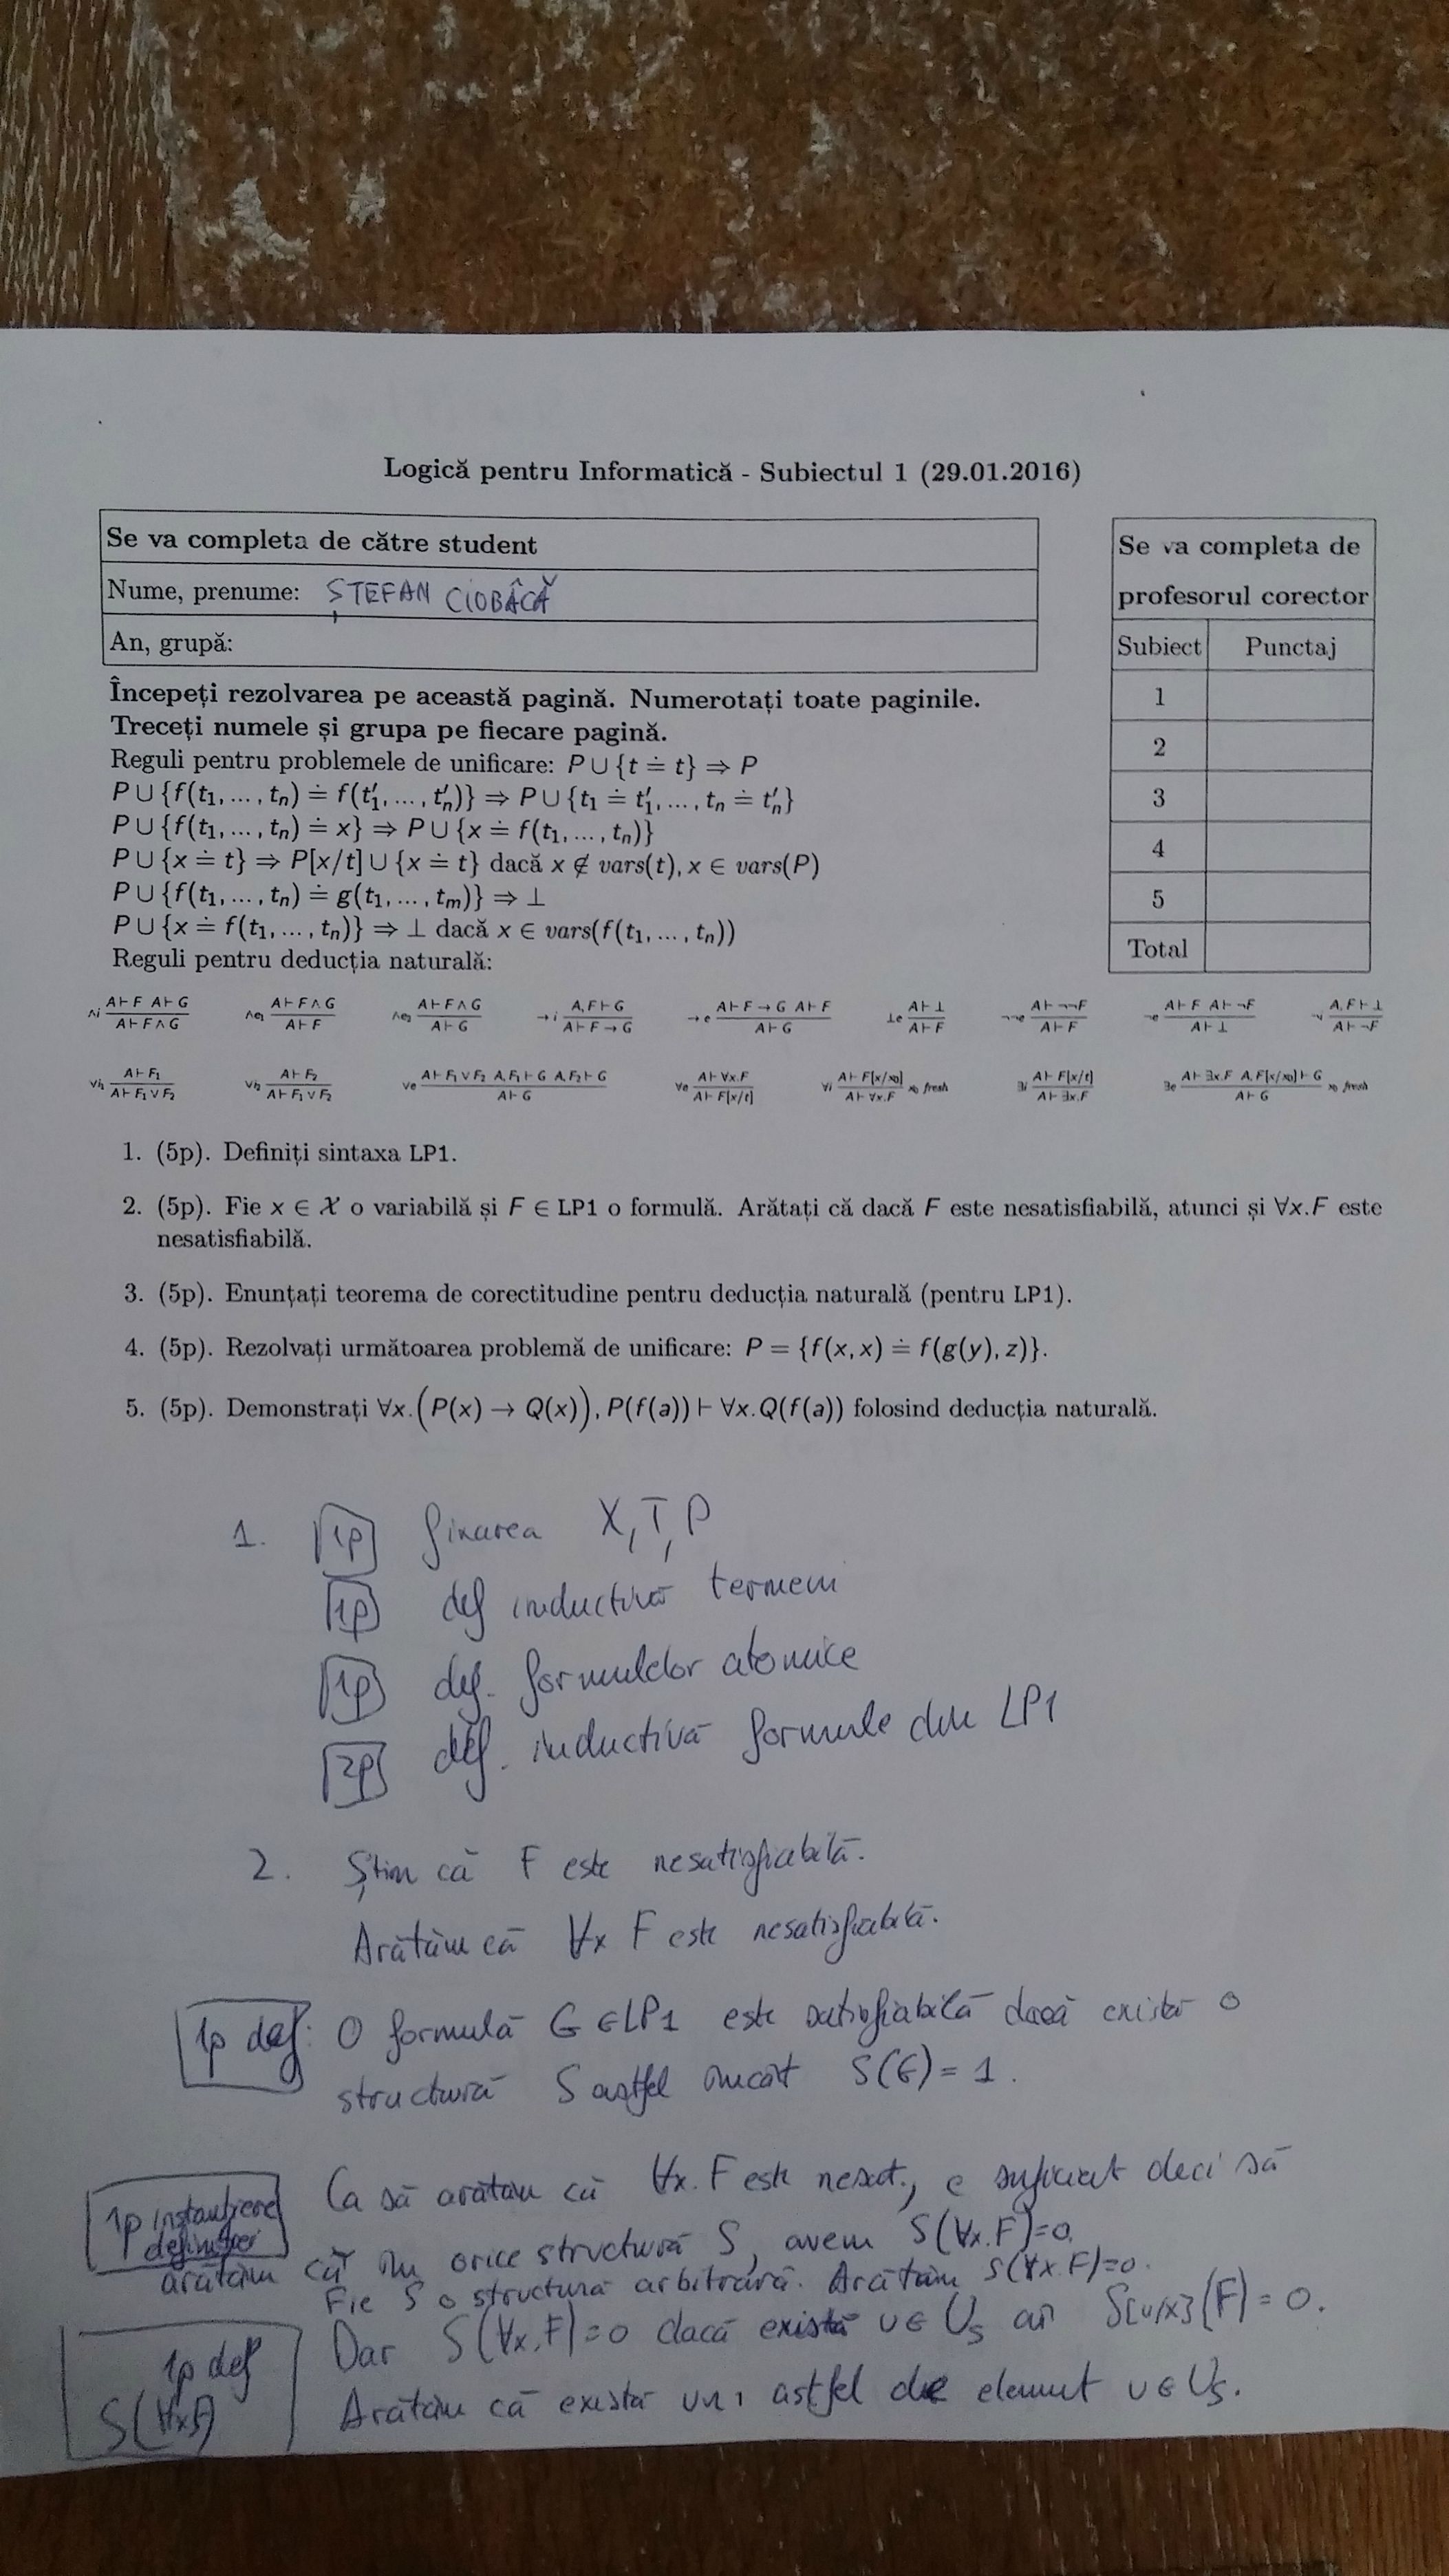 Logică pentru Informatică - Subiectul 1 (29.01.2016)
Se va completa de către student
Nume, prenume: ȘTEFAN CIOBÂCĂ
An, grupă:
Se va completa de
profesorul corector
Subiect Punctaj
1
2
3
4
5
Total
Începeți rezolvarea pe această pagină. Numerotați toate paginile.
Treceți numele și grupa pe fiecare pagină.
Reguli pentru problemele de unificare: P ∪ {t ≐ t} ⇒ P
P ∪ {f(t₁, ..., tₙ) ≐ f(t′₁, ..., t′ₙ)} ⇒ P ∪ {t₁ ≐ t′₁, ..., tₙ ≐ t′ₙ}
P ∪ {f(t₁, ..., tₙ) ≐ x} ⇒ P ∪ {x ≐ f(t₁, ..., tₙ)}
P ∪ {x ≐ t} ⇒ P[x/t] ∪ {x ≐ t} dacă x ∉ vars(t), x ∈ vars(P)
P ∪ {f(t₁, ..., tₙ) ≐ g(t₁, ..., tₘ)} ⇒ ⊥
P ∪ {x ≐ f(t₁, ..., tₙ)} ⇒ ⊥ dacă x ∈ vars(f(t₁, ..., tₙ))
Reguli pentru deducția naturală:
∧i A⊢F A⊢G / A⊢F∧G ∧e₁ A⊢F∧G / A⊢F ∧e₂ A⊢F∧G / A⊢G →i A,F⊢G / A⊢F→G →e A⊢F→G A⊢F / A⊢G ⊥e A⊢⊥ / A⊢F ¬¬e A⊢¬¬F / A⊢F ¬e A⊢F A⊢¬F / A⊢⊥ ¬i A,F⊢⊥ / A⊢¬F
∨i₁ A⊢F₁ / A⊢F₁∨F₂ ∨i₂ A⊢F₂ / A⊢F₁∨F₂ ∨e A⊢F₁∨F₂ A,F₁⊢G A,F₂⊢G / A⊢G ∀e A⊢∀x.F / A⊢F[x/t] ∀i A⊢F[x/x₀] / A⊢∀x.F x₀ fresh ∃i A⊢F[x/t] / A⊢∃x.F ∃e A⊢∃x.F A,F[x/x₀]⊢G / A⊢G x₀ fresh
1. (5p). Definiți sintaxa LP1.
2. (5p). Fie x ∈ 𝒳 o variabilă și F ∈ LP1 o formulă. Arătați că dacă F este nesatisfiabilă, atunci și ∀x.F este
nesatisfiabilă.
3. (5p). Enunțați teorema de corectitudine pentru deducția naturală (pentru LP1).
4. (5p). Rezolvați următoarea problemă de unificare: P = {f(x, x) ≐ f(g(y), z)}.
5. (5p). Demonstrați ∀x.(P(x) → Q(x)), P(f(a)) ⊢ ∀x.Q(f(a)) folosind deducția naturală.
1. 1p fixarea X, T, P
1p def inductivă termeni
1p def. formulelor atomice
2p def. inductivă formule din LP1
2. Știm că F este nesatisfiabilă.
Arătăm că ∀x F este nesatisfiabilă.
1p def: O formulă G ∈ LP1 este satisfiabilă dacă există o
structură S astfel încât S(G) = 1.
1p instanțiere definiței
Ca să arătăm că ∀x.F este nesat., e suficient deci să
arătăm că în orice structură S, avem S(∀x.F)=0.
Fie S o structură arbitrară. Arătăm S(∀x.F)=0.
1p def S(∀xF)
Dar S(∀x.F)=0 dacă există u ∈ U_S aî S[u/x](F) = 0.
Arătăm că există un astfel de element u ∈ U_S.